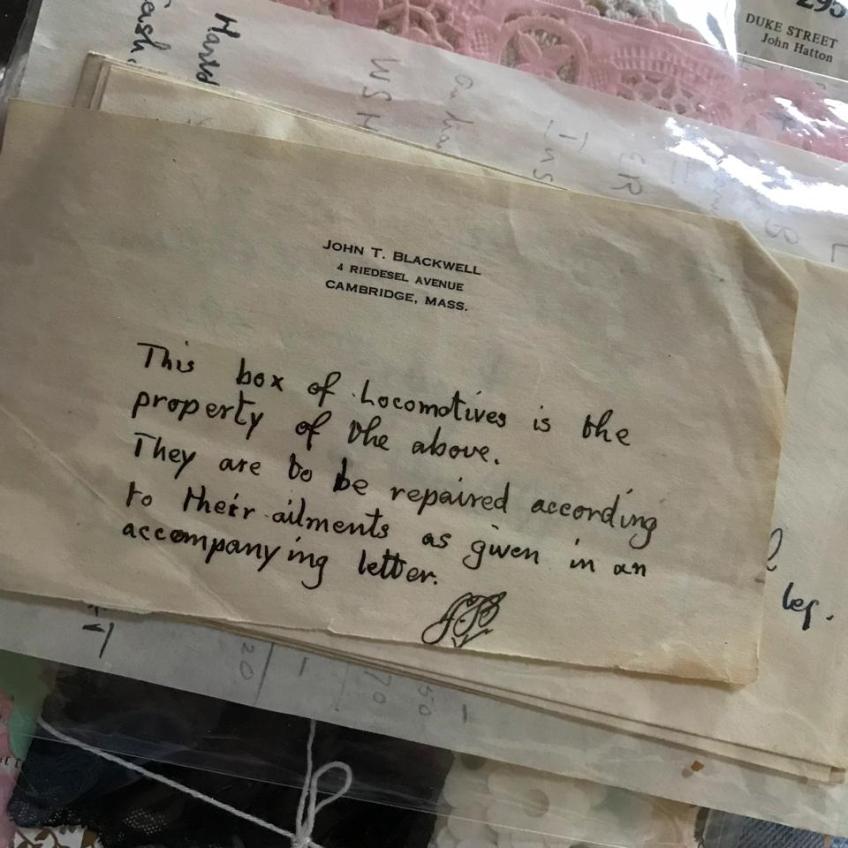 295
DUKE STREET
John Hatton
JOHN T. BLACKWELL
4 RIEDESEL AVENUE
CAMBRIDGE, MASS.
This box of Locomotives is the
property of the above.
They are to be repaired according
to their ailments as given in an
accompanying letter.
JTB
leg.